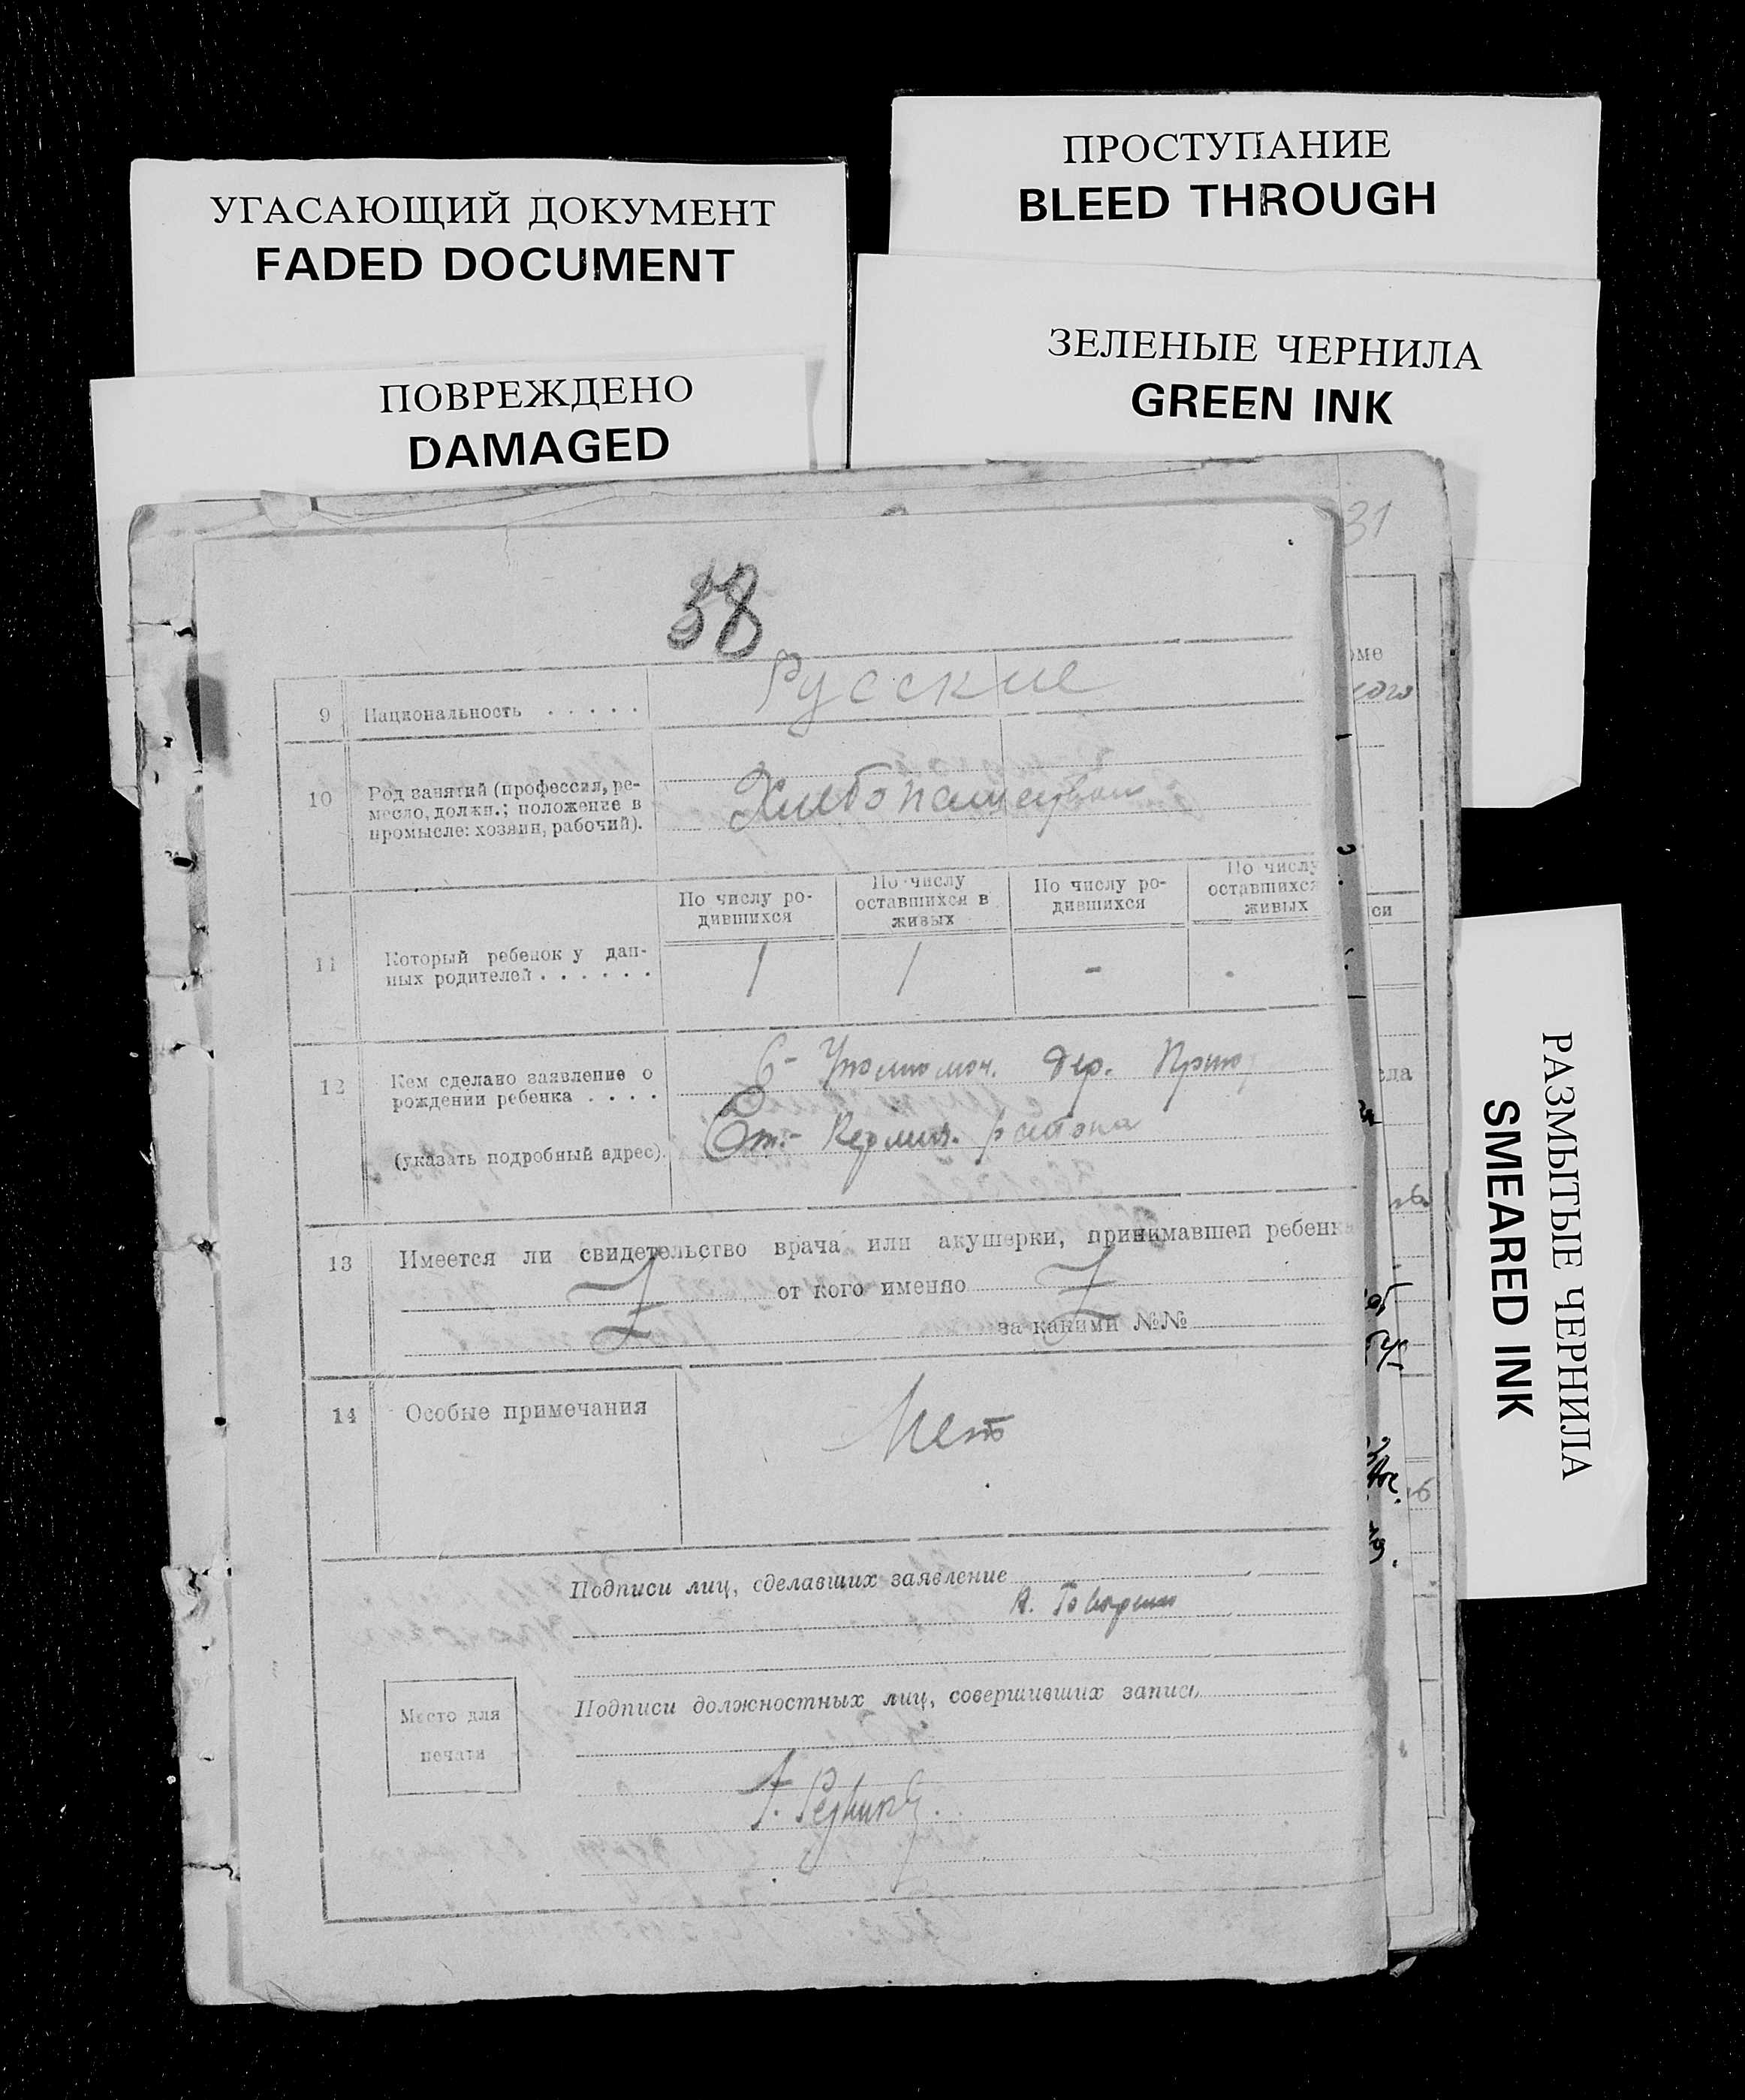 ПРОСТУПАНИЕ
BLEED THROUGH
УГАСАЮЩИЙ ДОКУМЕНТ
FADED DOCUMENT
ЗЕЛЕНЫЕ ЧЕРНИЛА
GREEN INK
ПОВРЕЖДЕНО
DAMAGED
31
38
9 Национальность . . . . .
Русские
10 Род занятий (профессия, ре-
месло, должн.; положение в
промысле: хозяин, рабочий).
По числу ро-
дившихся
По числу
оставшихся в
живых
По числу ро-
дившихся
По числу
оставшихся
живых
11 Который ребенок у дан-
ных родителей . . . . . .
1 1 - .
12 Кем сделано заявление о
рождении ребенка . . . .
(указать подробный адрес).
дер.
района
13 Имеется ли свидетельство врача или акушерки, принимавшей ребенка
от кого именно
за какими №№
14 Особые примечания
Нет
Подписи лиц, сделавших заявление
А.
Подписи должностных лиц, совершивших запись
Место для
печати
РАЗМЫТЫЕ ЧЕРНИЛА
SMEARED INK